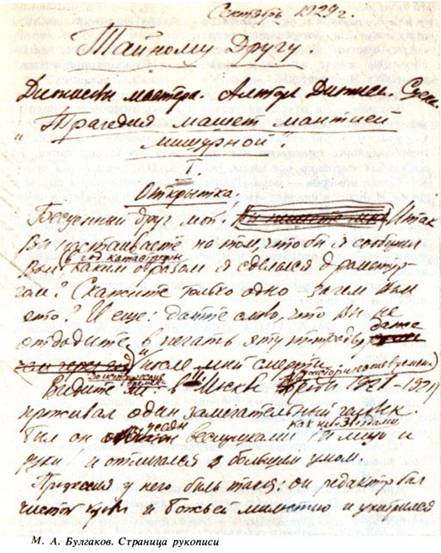 Сентябрь 1929 г.
Тайному Другу.
Дионисовы мастера. Алтарь Диониса. Сцены
"Трагедия машет мантией
мишурной".
I.
Открытка.
Бесценный друг мой! Итак
Вы настаиваете на том, чтобы я сообщил
Вам в год катастрофы каким образом я сделался драматур-
гом? Скажите только одно - зачем вам
это? И еще: дайте слово, что Вы не
отдадите в печать эту тетрадь даже
и после моей смерти.
Видите ли: в Москве
проживал один замечательный человек.
Был он усеян веснушками как небо звездами и лицо и
руки и отличался большим умом.
Профессия у него была такая: он редактор был
чистой крови и божьей милостью и ухитрился
М. А. Булгаков. Страница рукописи